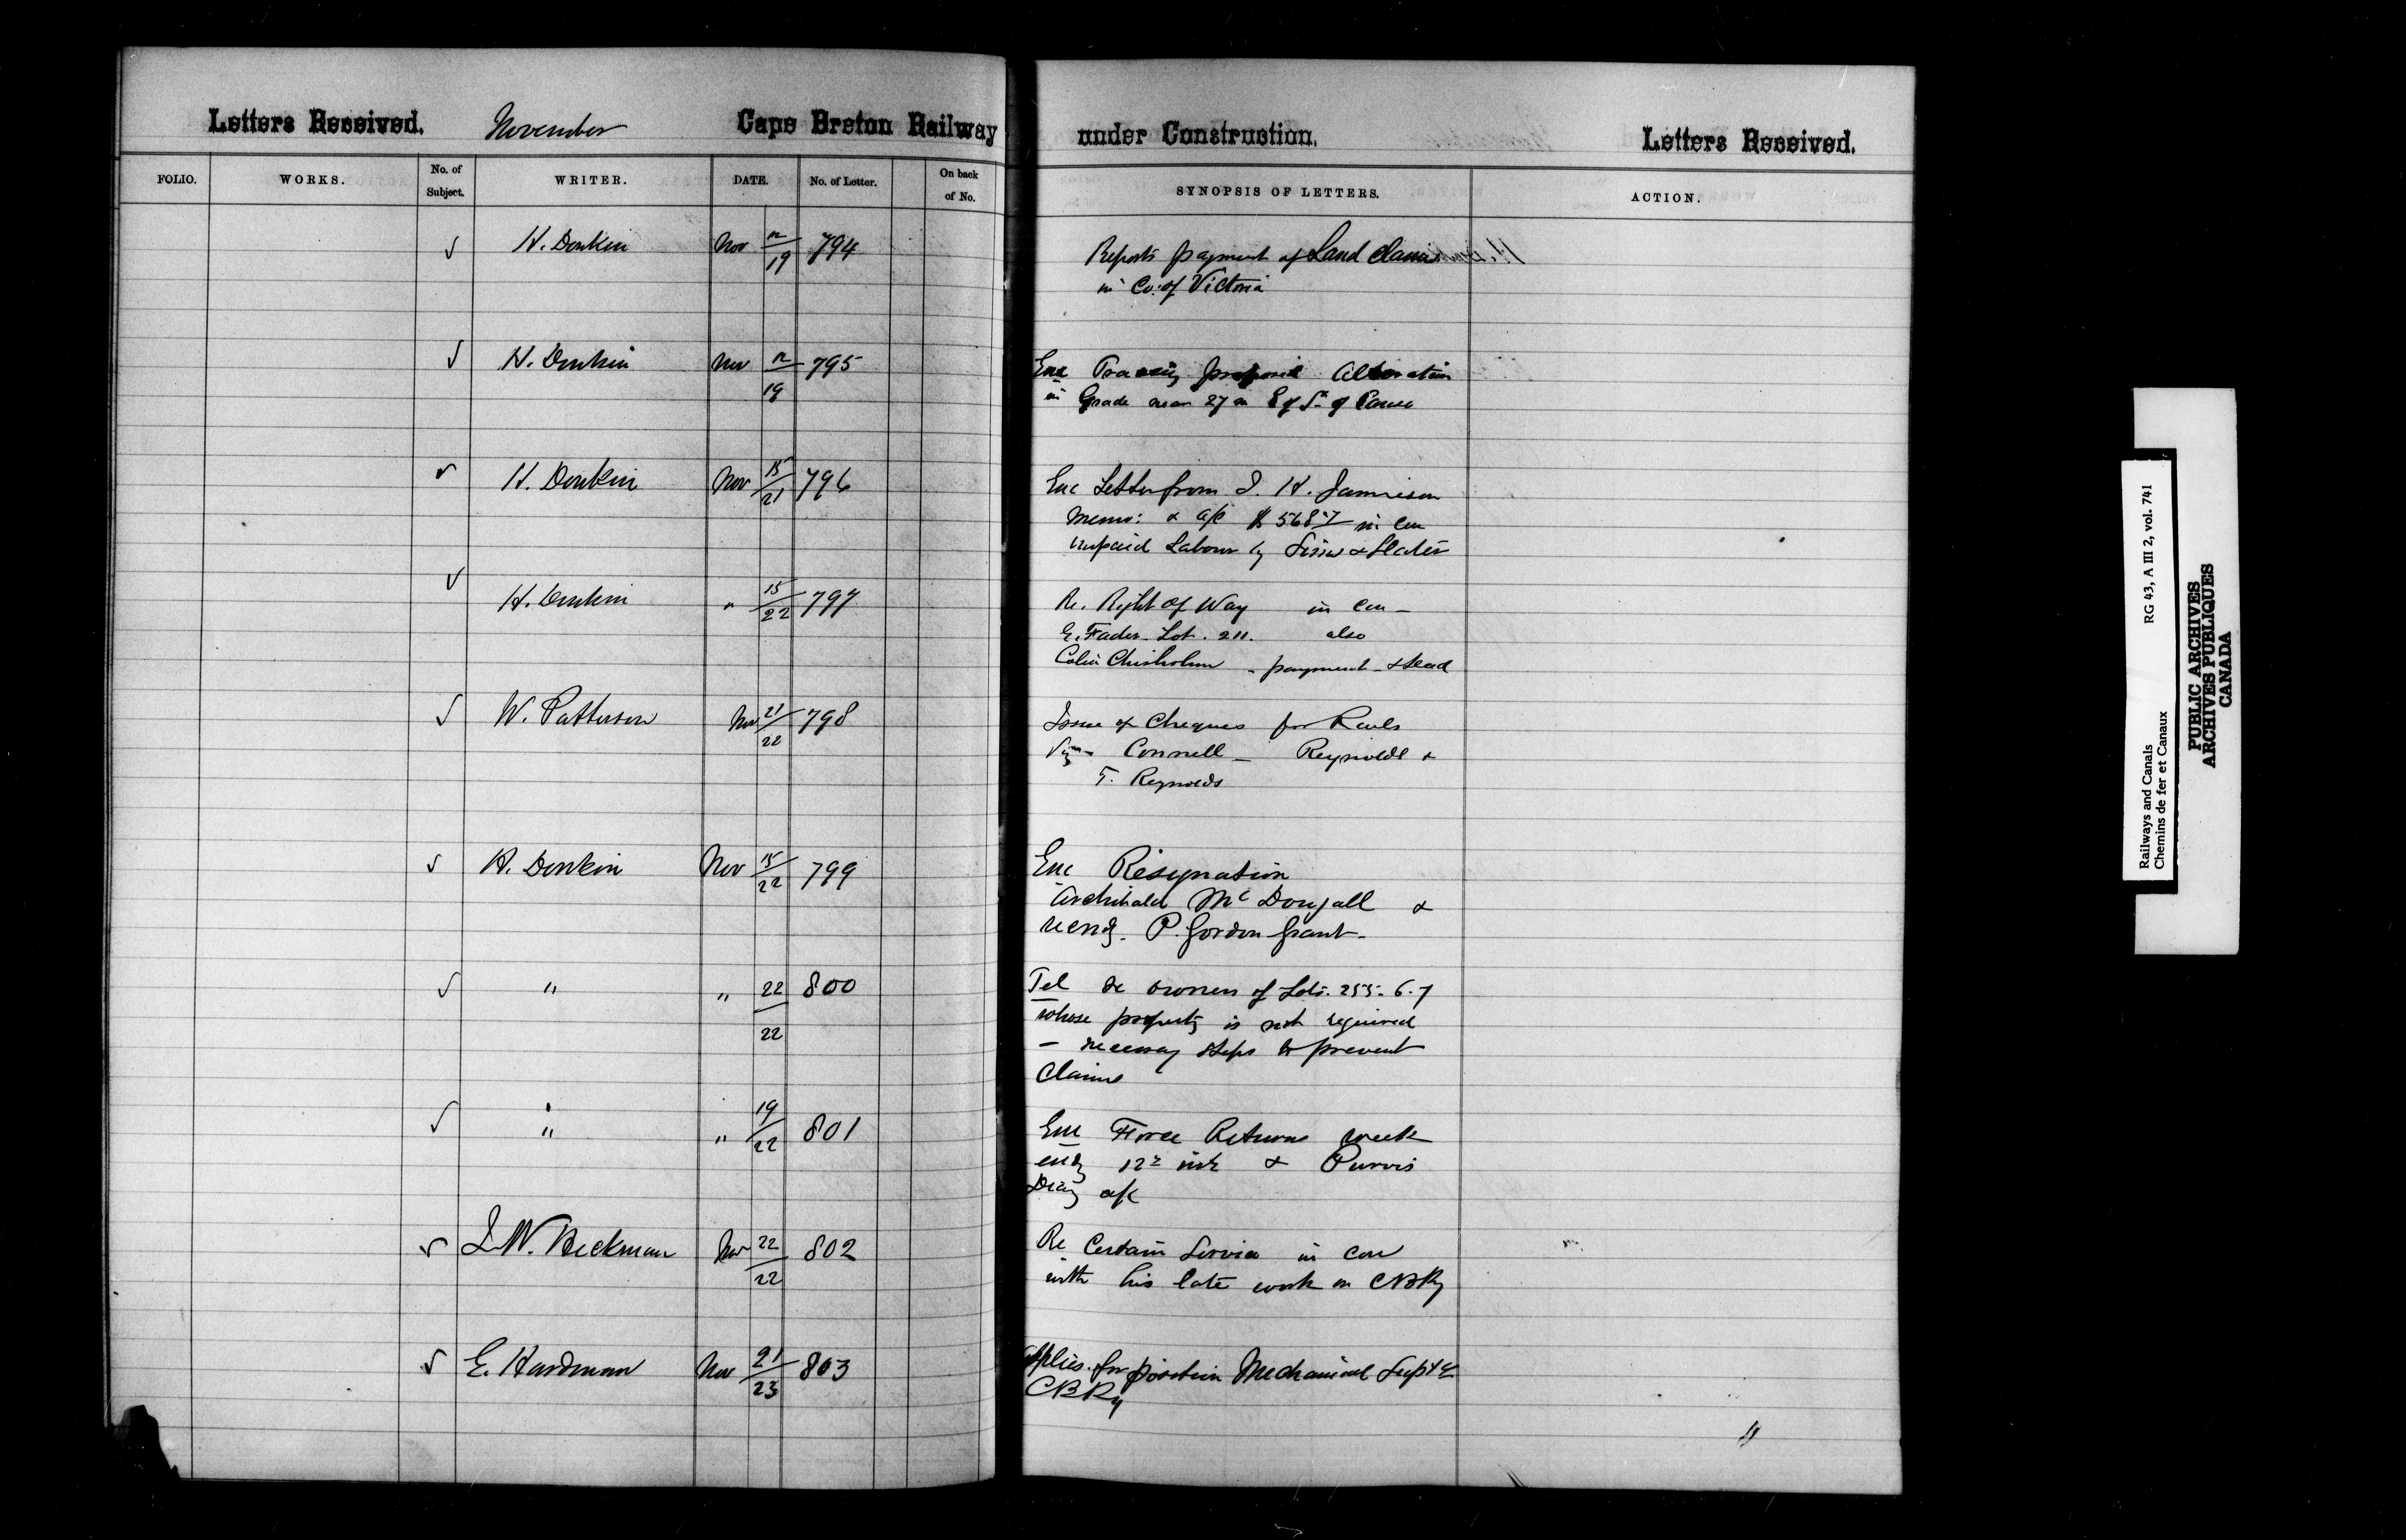 Letters Received. November Cape Breton Railway under Construction. Letters Received.
FOLIO. WORKS. No. of Subject. WRITER. DATE. No. of Letter. On back of No. SYNOPSIS OF LETTERS. ACTION.
√ H. Donkin Nov 12/19 794 Reports payment of Land Claims
in Co: of Victoria
√ H. Donkin Nov 12/19 795 Enc Tracing proposed Alteration
in Grade near 27 m E of St. of Canso
√ H. Donkin Nov 15/21 796 Enc Letter from J. H. Jamieson
Memo: & a/c $ 568 in con
unpaid Labour by Sims & Slater
√ H. Donkin " 15/22 797 Re. Right of Way in con –
E. Fader Lot. 211. also
Colin Chisholm - payment &
√ W. Patterson Nov 21/22 798 Issue of Cheques for Rails
Viz Connell – Reynolds &
T. Reynolds
√ H. Donkin Nov 15/22 799 Enc Resignation
Archibald McDougall &
P. Gordon Grant.
√ " " 22/22 800 Tel re owners of Lots. 255. 6. 7
whose property is not required
– necessary steps to prevent
Claims
√ " " 19/22 801 Enc Force Returns week
endg 12th inst & Purvis
a/c
√ J. W. Heckman Nov 22/22 802 Re Certain Service in con
with his late work on CBRy
√ E. Hardman Nov 21/23 803 Applies for position Mechanical Supt
CBRy
Railways and Canals RG 43, A III 2, vol. 741
Chemins de fer et Canaux
PUBLIC ARCHIVES
ARCHIVES PUBLIQUES
CANADA